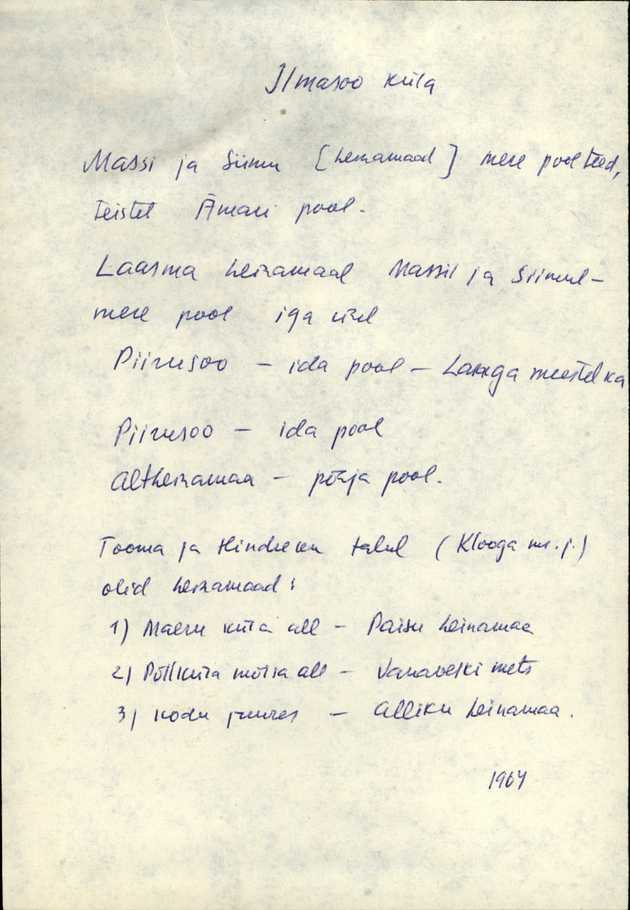 Ilmasoo küla
Massi ja Siimu [heinamaad] mere pool teed,
teistel Ämari pool.
Laasma heinamaal Massil ja Siimul -
mere pool iga
Piirusoo - ida pool - Laoga meestel ka
Piirusoo - ida pool
Altheinamaa - põhja pool.
Tooma ja Hindreku talul (Klooga m.j.)
olid heinamaad:
1) Maeru küla all - Paisu heinamaa
2) Põllküla mõisa all - Vanaveski mets
3) kodu juures - Alliku heinamaa.
1964